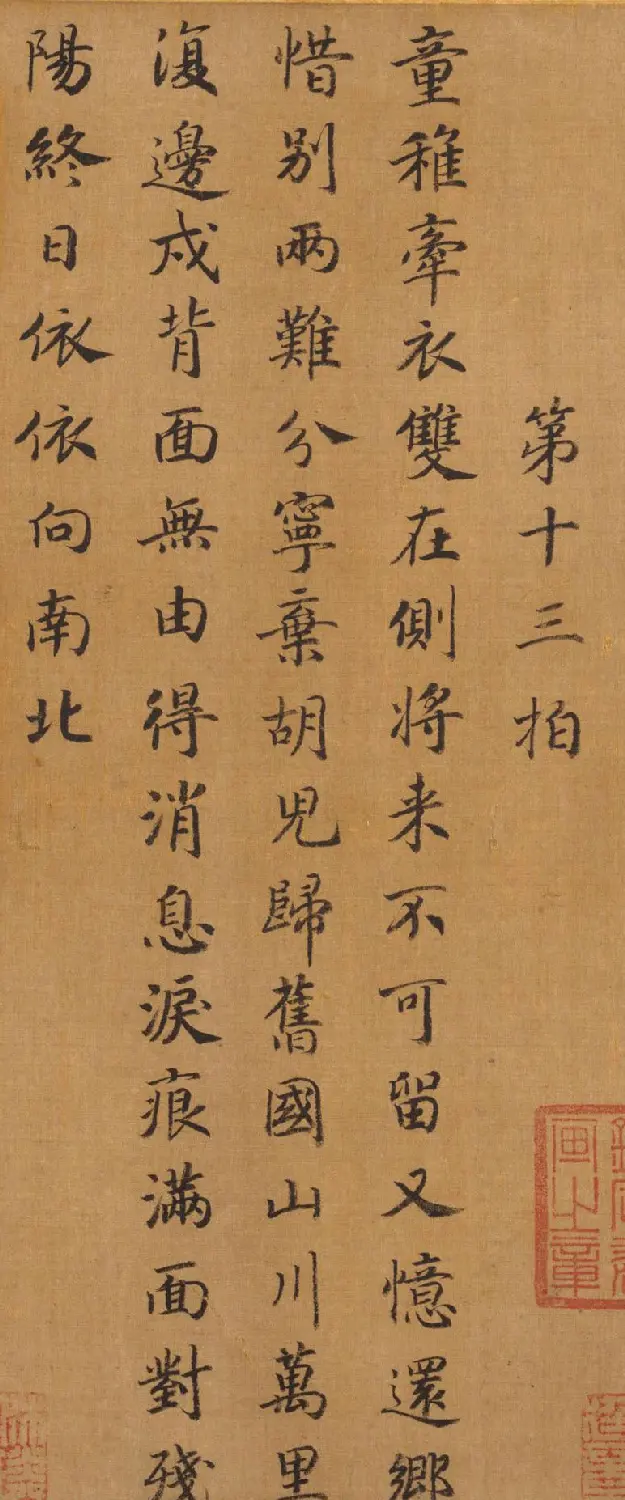 第十三拍
童稚牽衣雙在側將来不可留又憶還鄉
惜别兩難分寧棄胡兒歸舊國山川萬里
復邊戍背面無由得消息淚痕滿面對殘
陽終日依依向南北